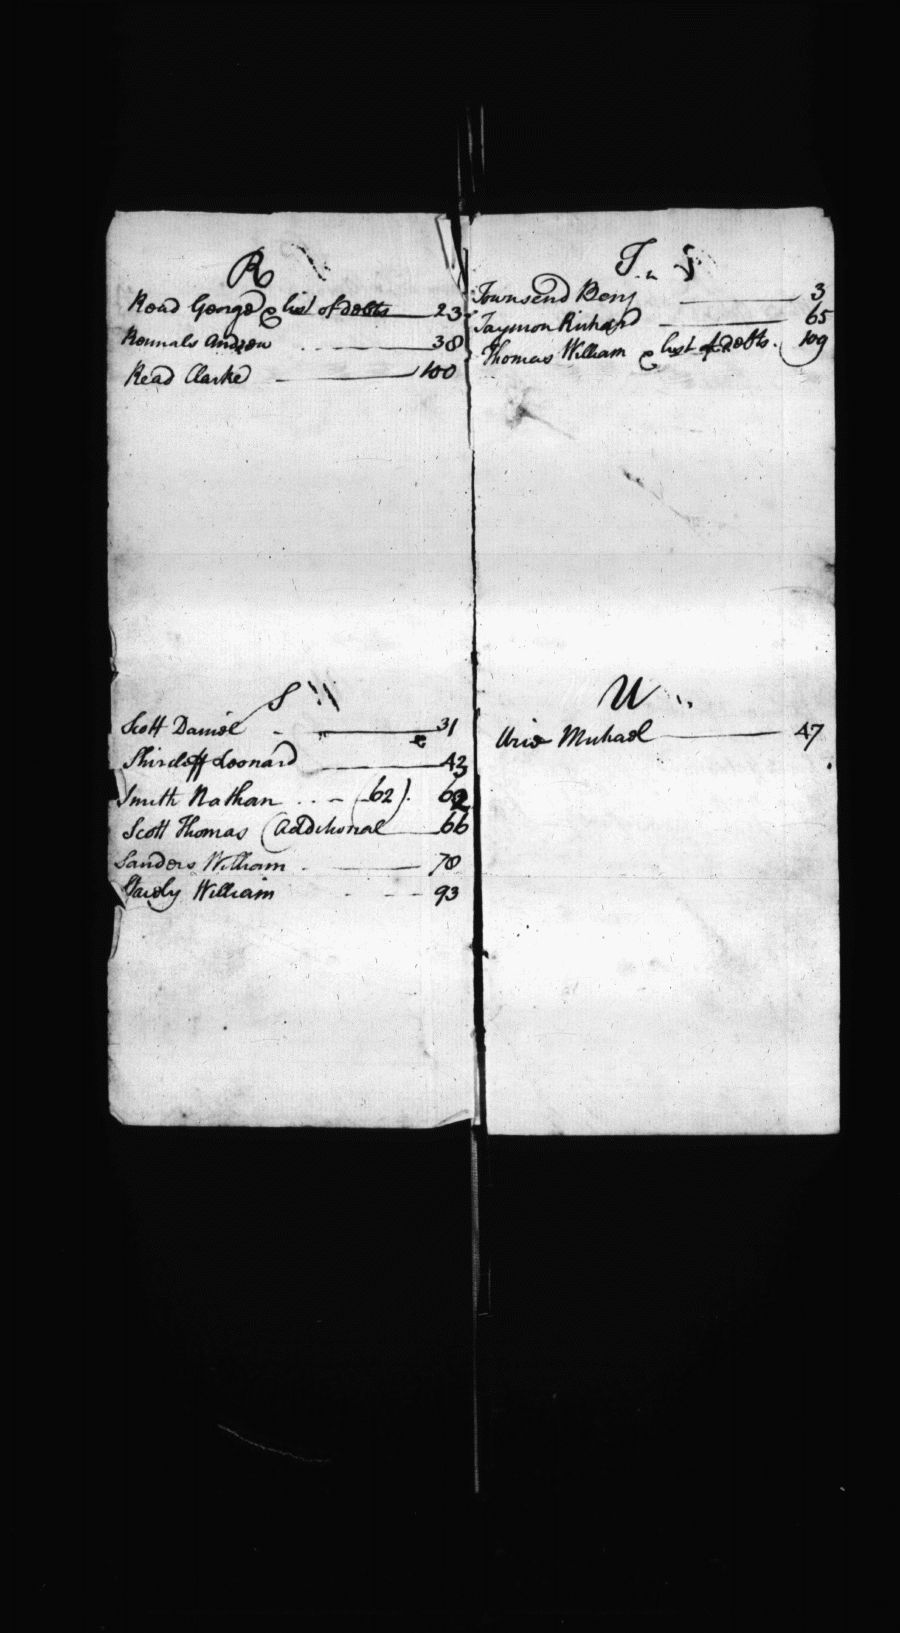 R
Read George & list of debts 23
Rennals Andrew 38
Read Clarke 100
S
Scott Daniel 31
Shircliff Leonard 43
Smith Nathan (62). 62
Scott Thomas (Additional 66
Sanders William 78
William 93
T
Townsend Benj 3
Taymon Richard 65
Thomas William & list of debts. 109
U
Urie Michael 47